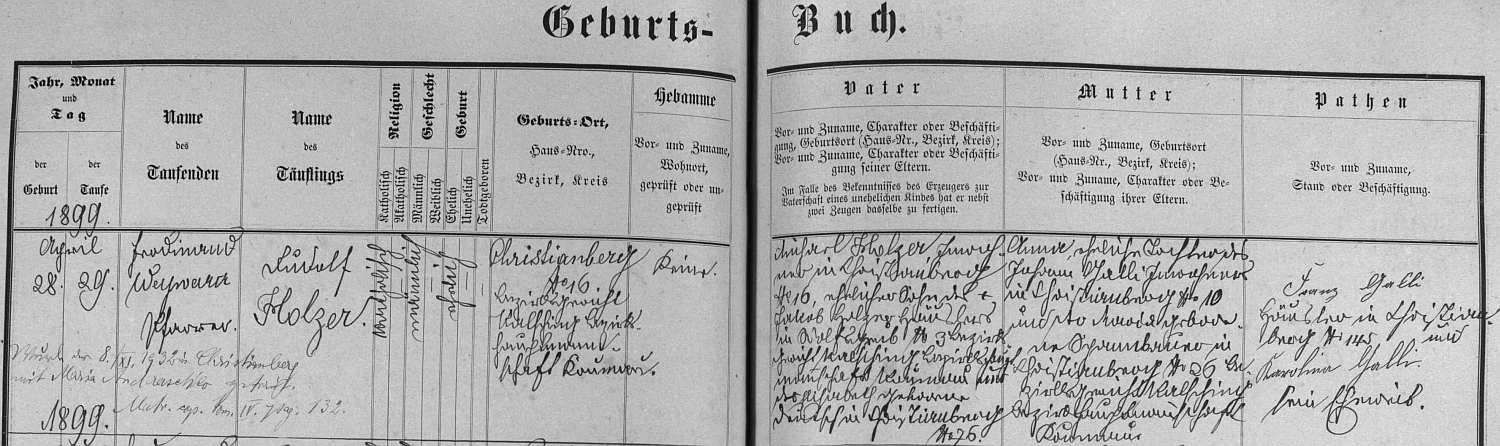 Geburts-
Buch.
Jahr, Monat
und
Tag
der
Geburt
der
Taufe
Name
des
Taufenden
Name
des
Täuflings
Religion
Katholisch
Akatholisch
Geschlecht
Männlich
Weiblich
Geburt
Ehelich
Unehelich
Todtgeboren
Geburts-Ort,
Haus-Nro.,
Bezirk, Kreis
Hebamme
Vor- und Zuname,
Wohnort,
geprüft oder un-
geprüft
Vater
Vor- und Zuname, Charakter oder Beschäfti-
gung, Geburtsort (Haus-Nr., Bezirk, Kreis);
Vor- und Zuname, Charakter oder Beschäfti-
gung seiner Eltern.
Im Falle des Bekenntnisses des Erzeugers zur
Vaterschaft eines unehelichen Kindes hat er nebst
zwei Zeugen dasselbe zu fertigen.
Mutter
Vor- und Zuname, Geburtsort
(Haus-Nr., Bezirk, Kreis);
Vor- und Zuname, Charakter oder Be-
schäftigung ihrer Eltern.
Pathen
Vor- und Zuname,
Stand oder Beschäftigung.
1899.
April
28. 29.
Ferdinand
Weyward
Pfarrer.
Rudolf
Holzer.
katholisch
männlich
ehelich
Christianberg
No 16
Bezirksgericht
Kalsching Bezirks-
hauptmann-
schaft Krummau.
Keine.
Michael Holzer, Inwoh-
ner in Christianberg
No 16, ehelicher Sohn des †
Jakob Holzer
in No 3 Bezirks-
gericht Kalsching Bezirkshaupt-
mannschaft Krummau und
der Elisabeth geborene
in Christianberg
No 76.
Anna, eheliche Tochter des
Johann Galli Inwohners
in Christianberg No 10
und der Maria gebore-
ne Spannbauer in
Christianberg No 26 Be-
zirksgericht Kalsching
Bezirkshauptmannschaft
Krummau
Franz Galli
Häusler in Christian-
berg No 145 und
Karolina Galli
sein Eheweib.
Wurde den 8./XI. 1932 in Christianberg
mit Maria Andraschko getraut.
Matr. cop. tom. IV. pag. 132.
1899.